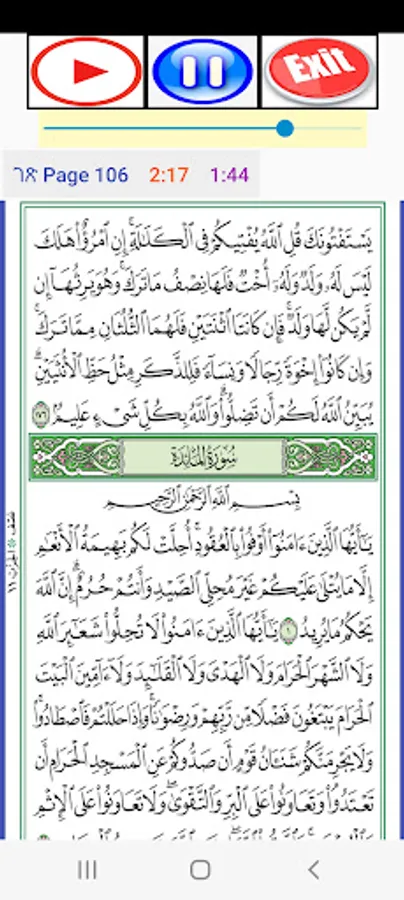 Exit
ገጽ Page 106 2:17 1:44
يَسْتَفْتُونَكَ قُلِ ٱللَّهُ يُفْتِيكُمْ فِى ٱلْكَلَٰلَةِ ۚ إِنِ ٱمْرُؤٌا۟ هَلَكَ
لَيْسَ لَهُۥ وَلَدٌ وَلَهُۥٓ أُخْتٌ فَلَهَا نِصْفُ مَا تَرَكَ ۚ وَهُوَ يَرِثُهَآ إِن
لَّمْ يَكُن لَّهَا وَلَدٌ ۚ فَإِن كَانَتَا ٱثْنَتَيْنِ فَلَهُمَا ٱلثُّلُثَانِ مِمَّا تَرَكَ ۚ
وَإِن كَانُوٓا۟ إِخْوَةً رِّجَالًا وَنِسَآءً فَلِلذَّكَرِ مِثْلُ حَظِّ ٱلْأُنثَيَيْنِ ۗ
يُبَيِّنُ ٱللَّهُ لَكُمْ أَن تَضِلُّوا۟ ۗ وَٱللَّهُ بِكُلِّ شَىْءٍ عَلِيمٌۢ ١٧٦
سُورَةُ المَائِدَةِ
بِسْمِ ٱللَّهِ ٱلرَّحْمَٰنِ ٱلرَّحِيمِ
يَٰٓأَيُّهَا ٱلَّذِينَ ءَامَنُوٓا۟ أَوْفُوا۟ بِٱلْعُقُودِ ۚ أُحِلَّتْ لَكُم بَهِيمَةُ ٱلْأَنْعَٰمِ
إِلَّا مَا يُتْلَىٰ عَلَيْكُمْ غَيْرَ مُحِلِّى ٱلصَّيْدِ وَأَنتُمْ حُرُمٌ ۗ إِنَّ ٱللَّهَ
يَحْكُمُ مَا يُرِيدُ ١ يَٰٓأَيُّهَا ٱلَّذِينَ ءَامَنُوا۟ لَا تُحِلُّوا۟ شَعَٰٓئِرَ ٱللَّهِ
وَلَا ٱلشَّهْرَ ٱلْحَرَامَ وَلَا ٱلْهَدْىَ وَلَا ٱلْقَلَٰٓئِدَ وَلَآ ءَآمِّينَ ٱلْبَيْتَ
ٱلْحَرَامَ يَبْتَغُونَ فَضْلًا مِّن رَّبِّهِمْ وَرِضْوَٰنًا ۚ وَإِذَا حَلَلْتُمْ فَٱصْطَادُوا۟ ۚ
وَلَا يَجْرِمَنَّكُمْ شَنَـَٔانُ قَوْمٍ أَن صَدُّوكُمْ عَنِ ٱلْمَسْجِدِ ٱلْحَرَامِ أَن
تَعْتَدُوا۟ ۘ وَتَعَاوَنُوا۟ عَلَى ٱلْبِرِّ وَٱلتَّقْوَىٰ ۖ وَلَا تَعَاوَنُوا۟ عَلَى ٱلْإِثْمِ